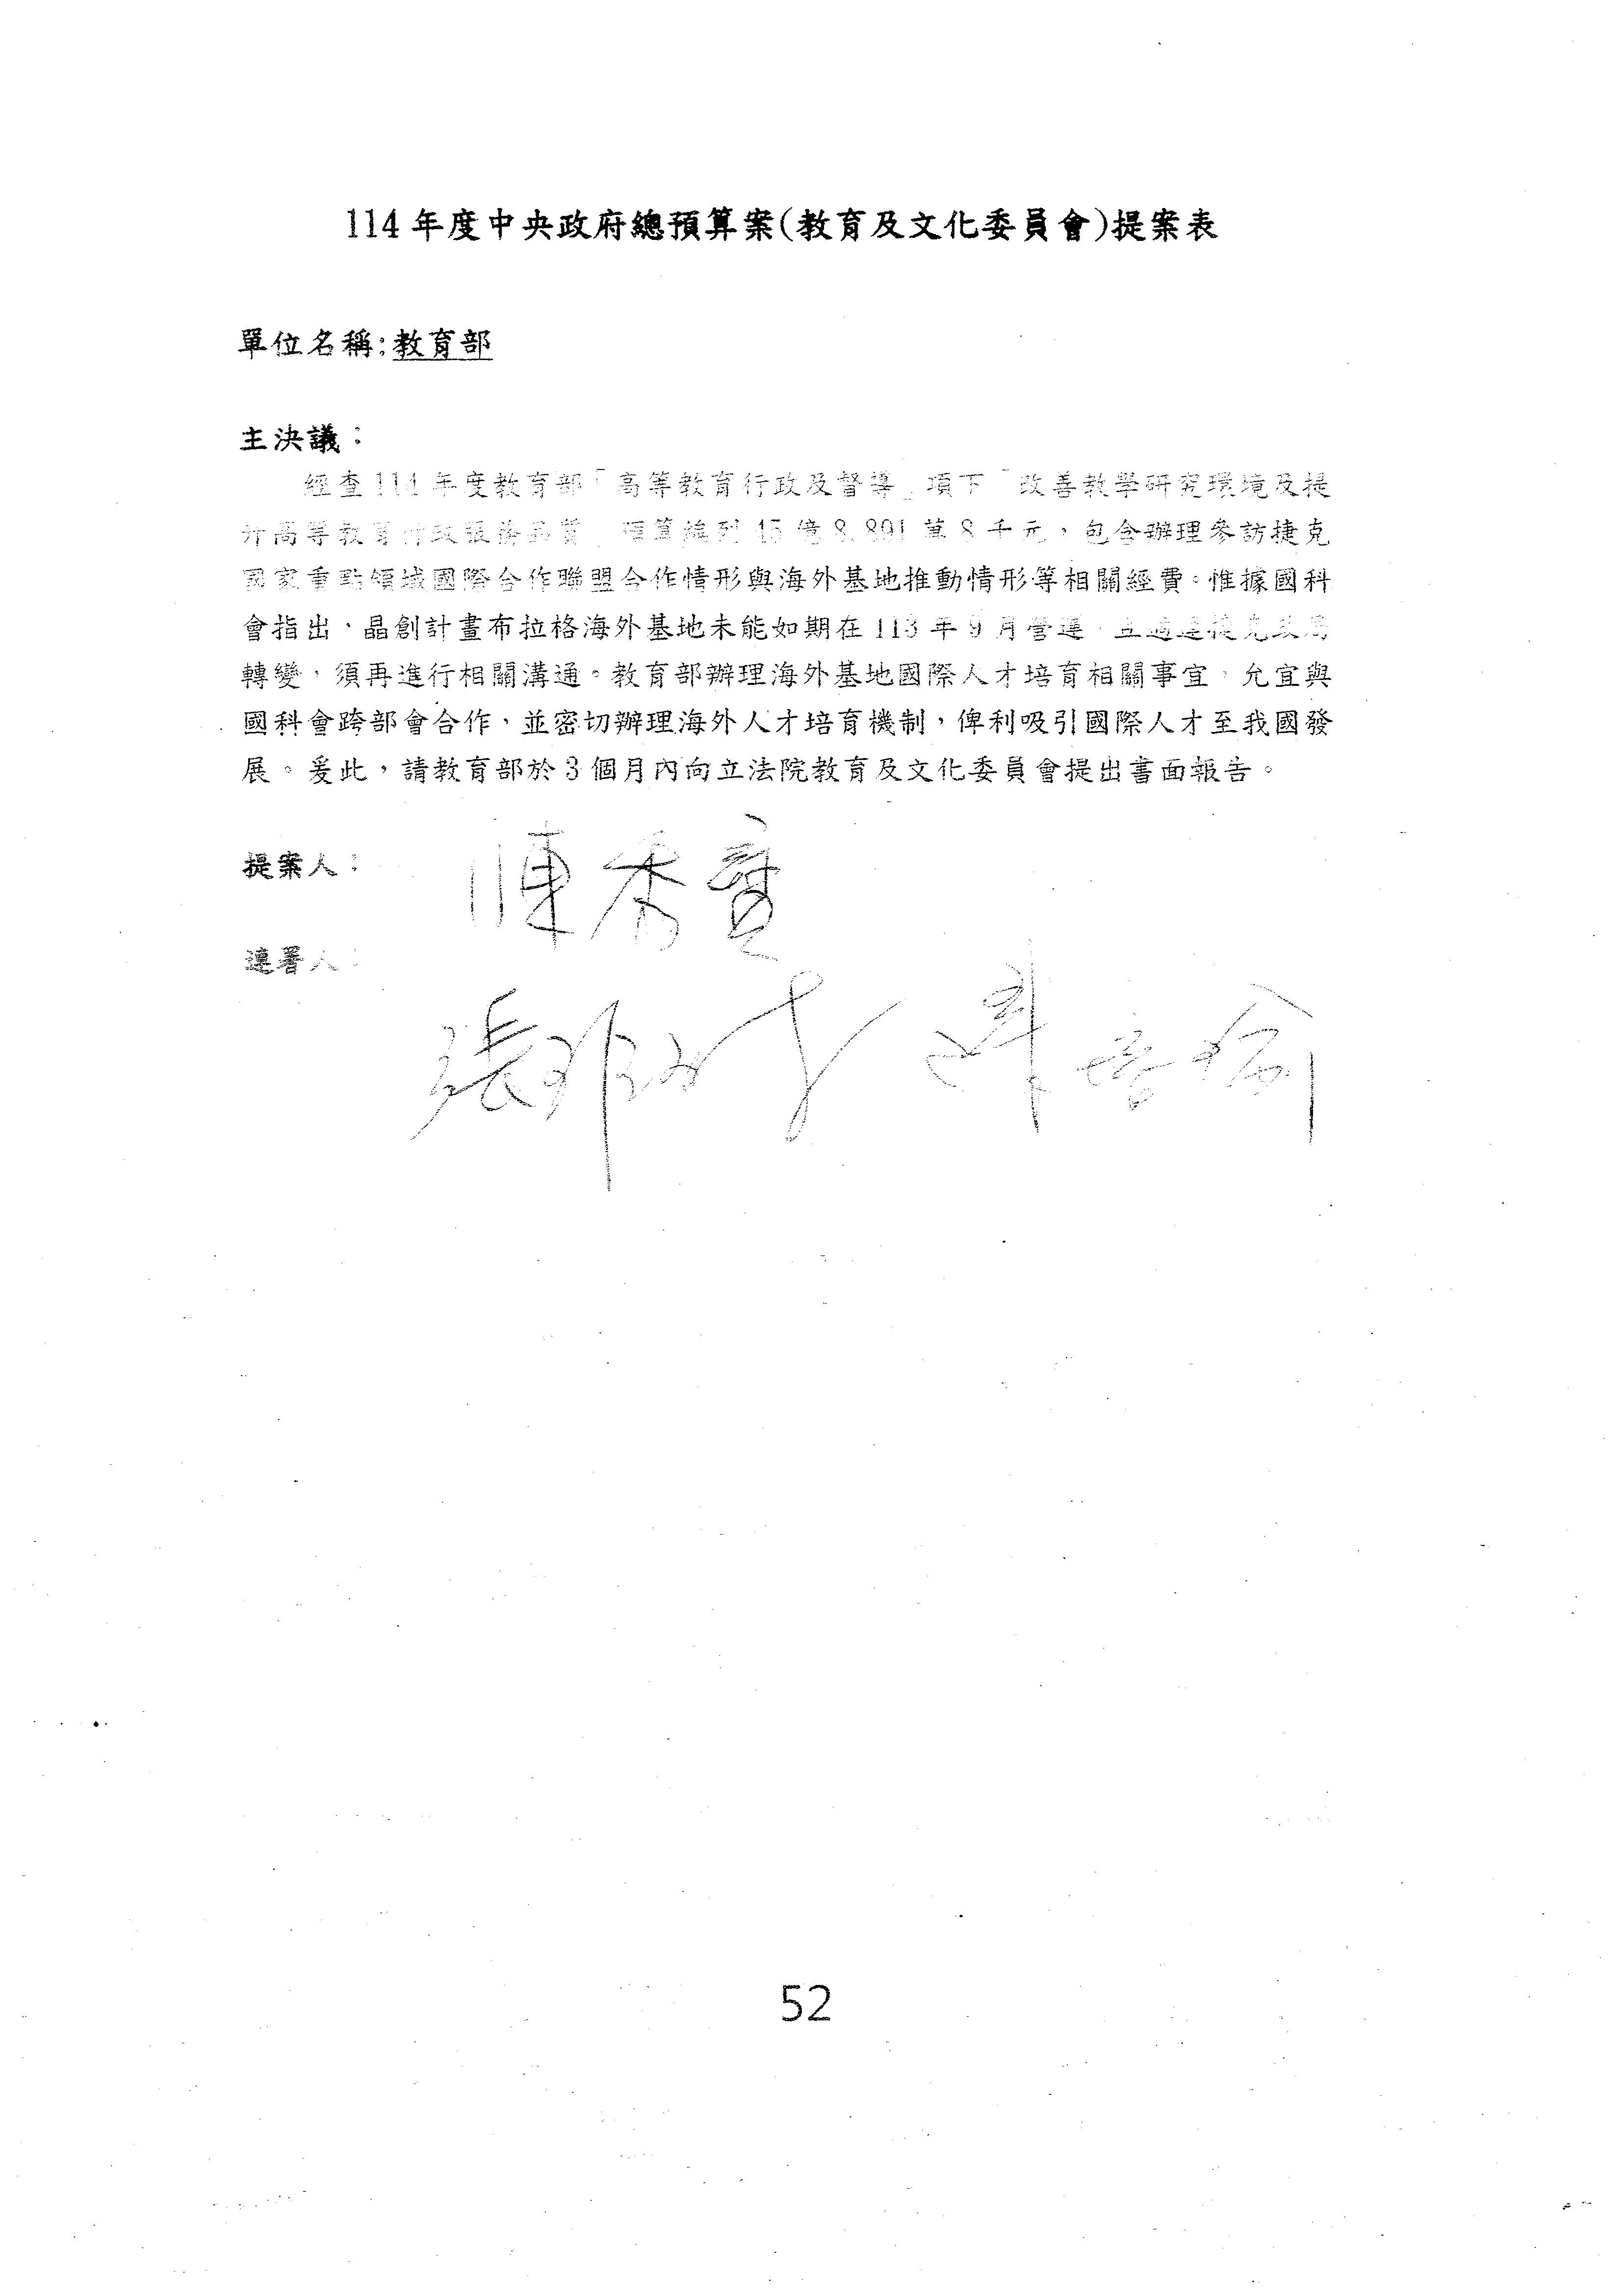 114年度中央政府總預算案(教育及文化委員會)提案表
單位名稱:教育部
主決議：
經查114年度教育部「高等教育行政及督導」項下「改善教學研究環境及提
升高等教育行政服務品質」預算編列 億 萬8千元，包含辦理參訪捷克
國家重點領域國際合作聯盟合作情形與海外基地推動情形等相關經費。惟據國科
會指出，晶創計畫布拉格海外基地未能如期在113年9月營運，且適逢捷克政局
轉變，須再進行相關溝通。教育部辦理海外基地國際人才培育相關事宜，允宜與
國科會跨部會合作，並密切辦理海外人才培育機制，俾利吸引國際人才至我國發
展。爰此，請教育部於3個月內向立法院教育及文化委員會提出書面報告。
提案人：
陳秀寳
連署人：
52